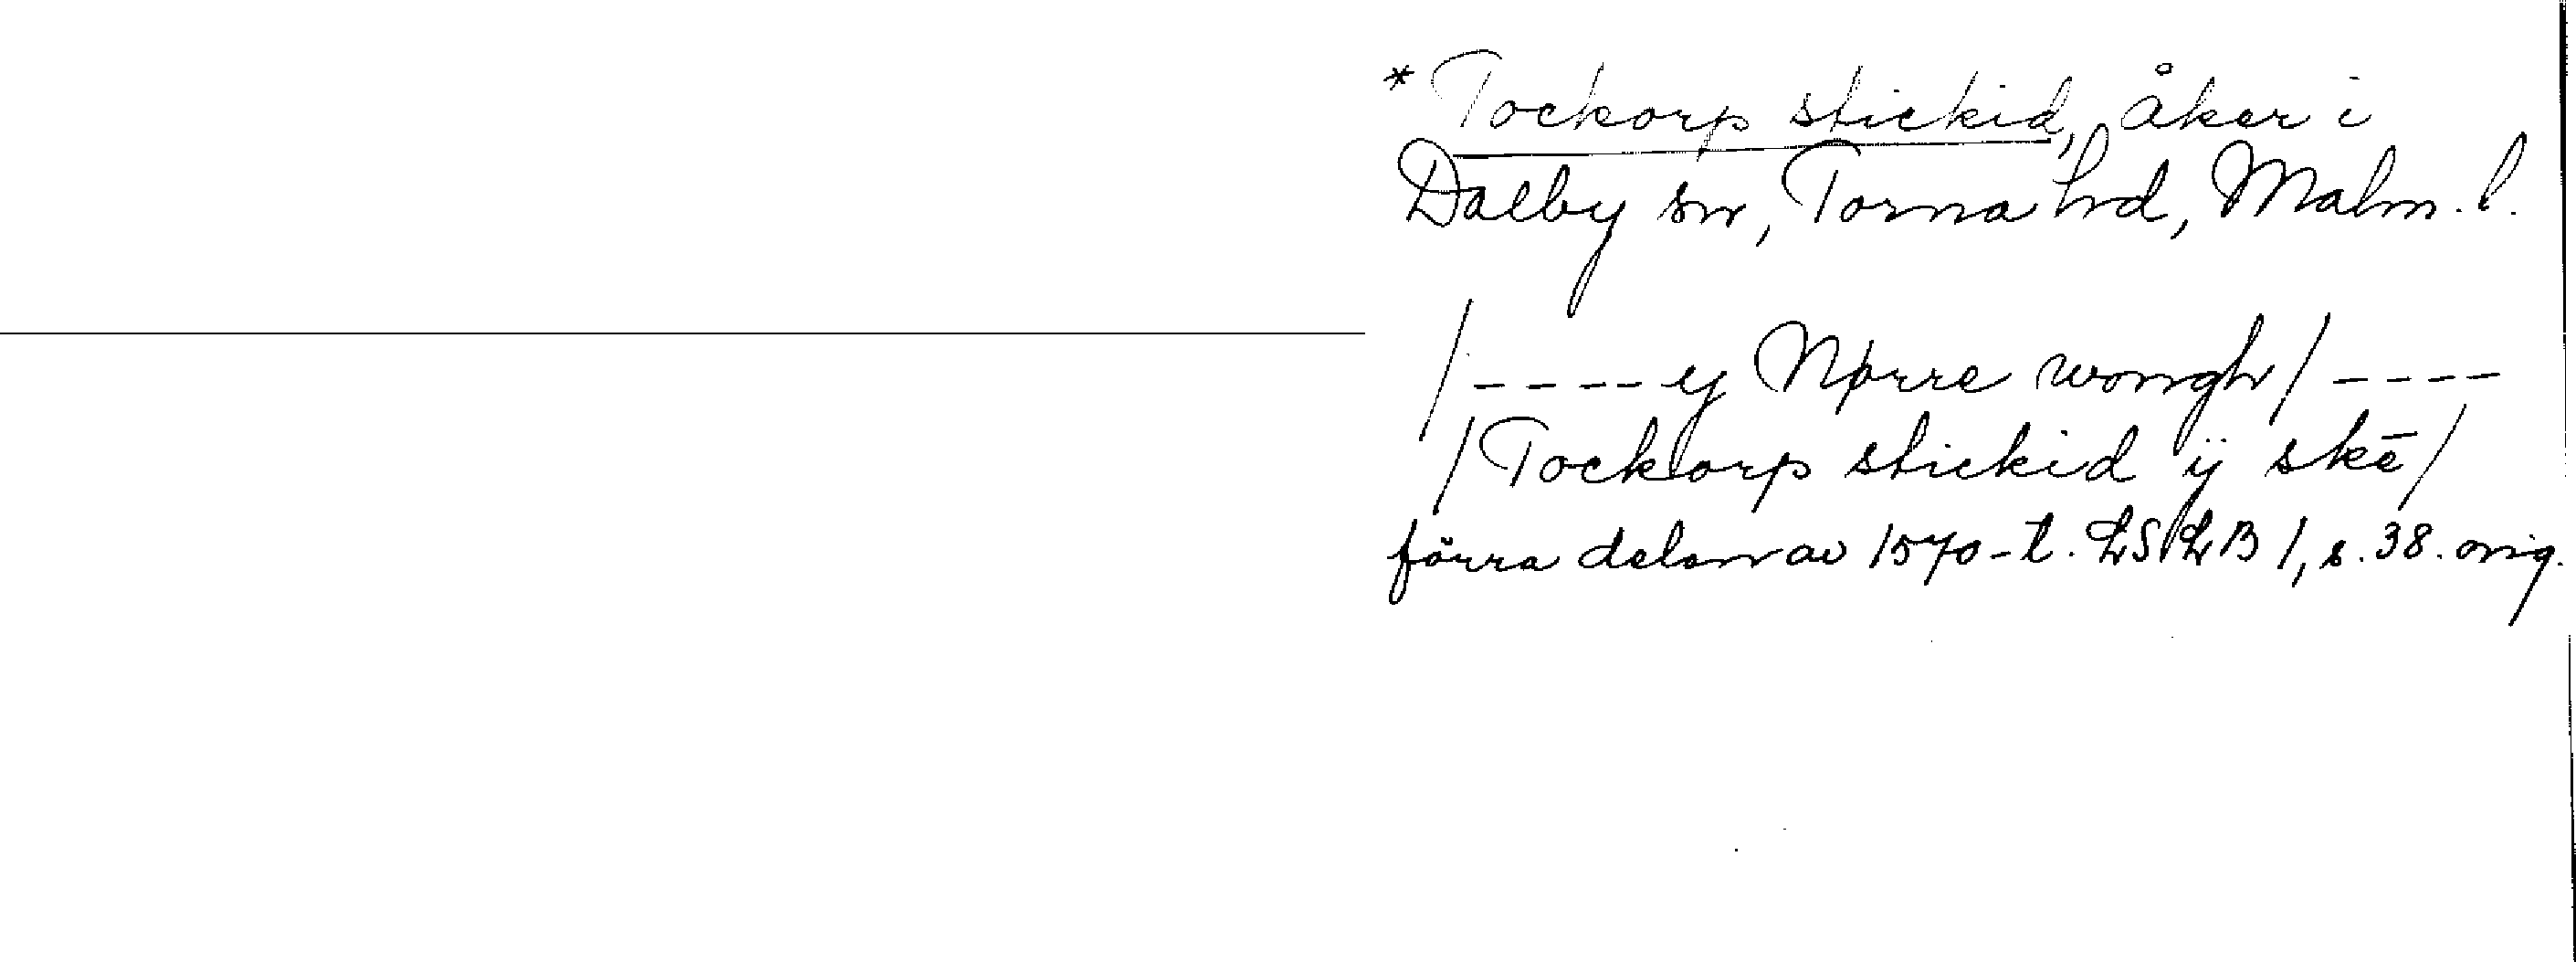 * Tockorp stickid, åker i
Dalby sn, Torna hd, Malm. l.
/---- ij Nørre wongh / ----
/ Tockorp stickid ij skē /
förra delen av 1570-t. LSLB 1, s. 38. orig.